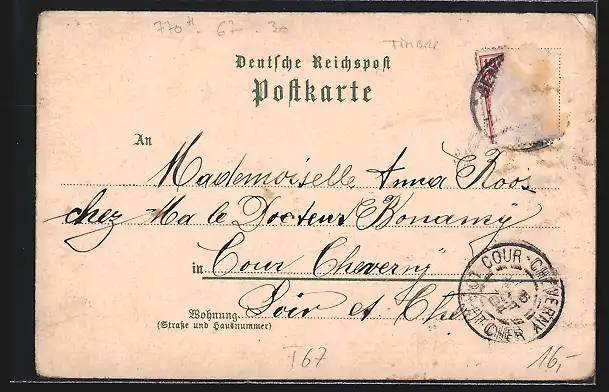 770 67 30
TIMBRE
Deutsche Reichspost
Postkarte
An
Mademoiselle Anna Roos
chez Ma le Docteur Bonamy
in Cour Cheverny
Loir et Cher
Wohnung
(Straße und Hausnummer)
COUR-CHEVERNY
CHER
T67
16,-